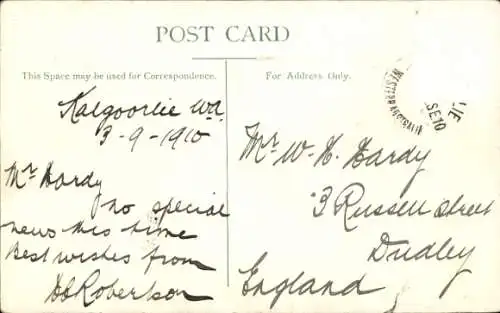 POST CARD
This Space may be used for Correspondence.
For Address Only.
Kalgoorlie Wa
3-9-1910
Mr Hardy
no special
news this time
Best wishes from
Robertson
Mr W. H. Hardy
3 Russell Street
Dudley
England
LIE
SE 10
WESTERN AUSTRALIA